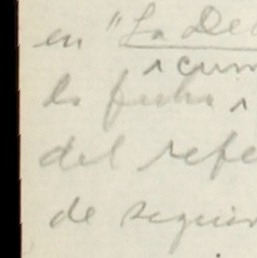 en "La De
^ cum
la fecha ^
del refe
de seguir